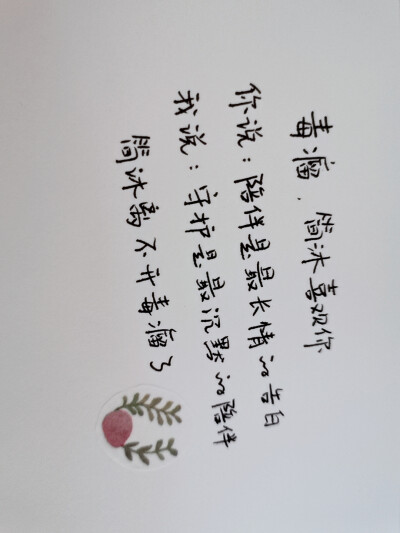 毒瘤，简沐喜欢你
你说：陪伴是最长情的告白
我说：守护是最沉默的陪伴
简沐离不开毒瘤了